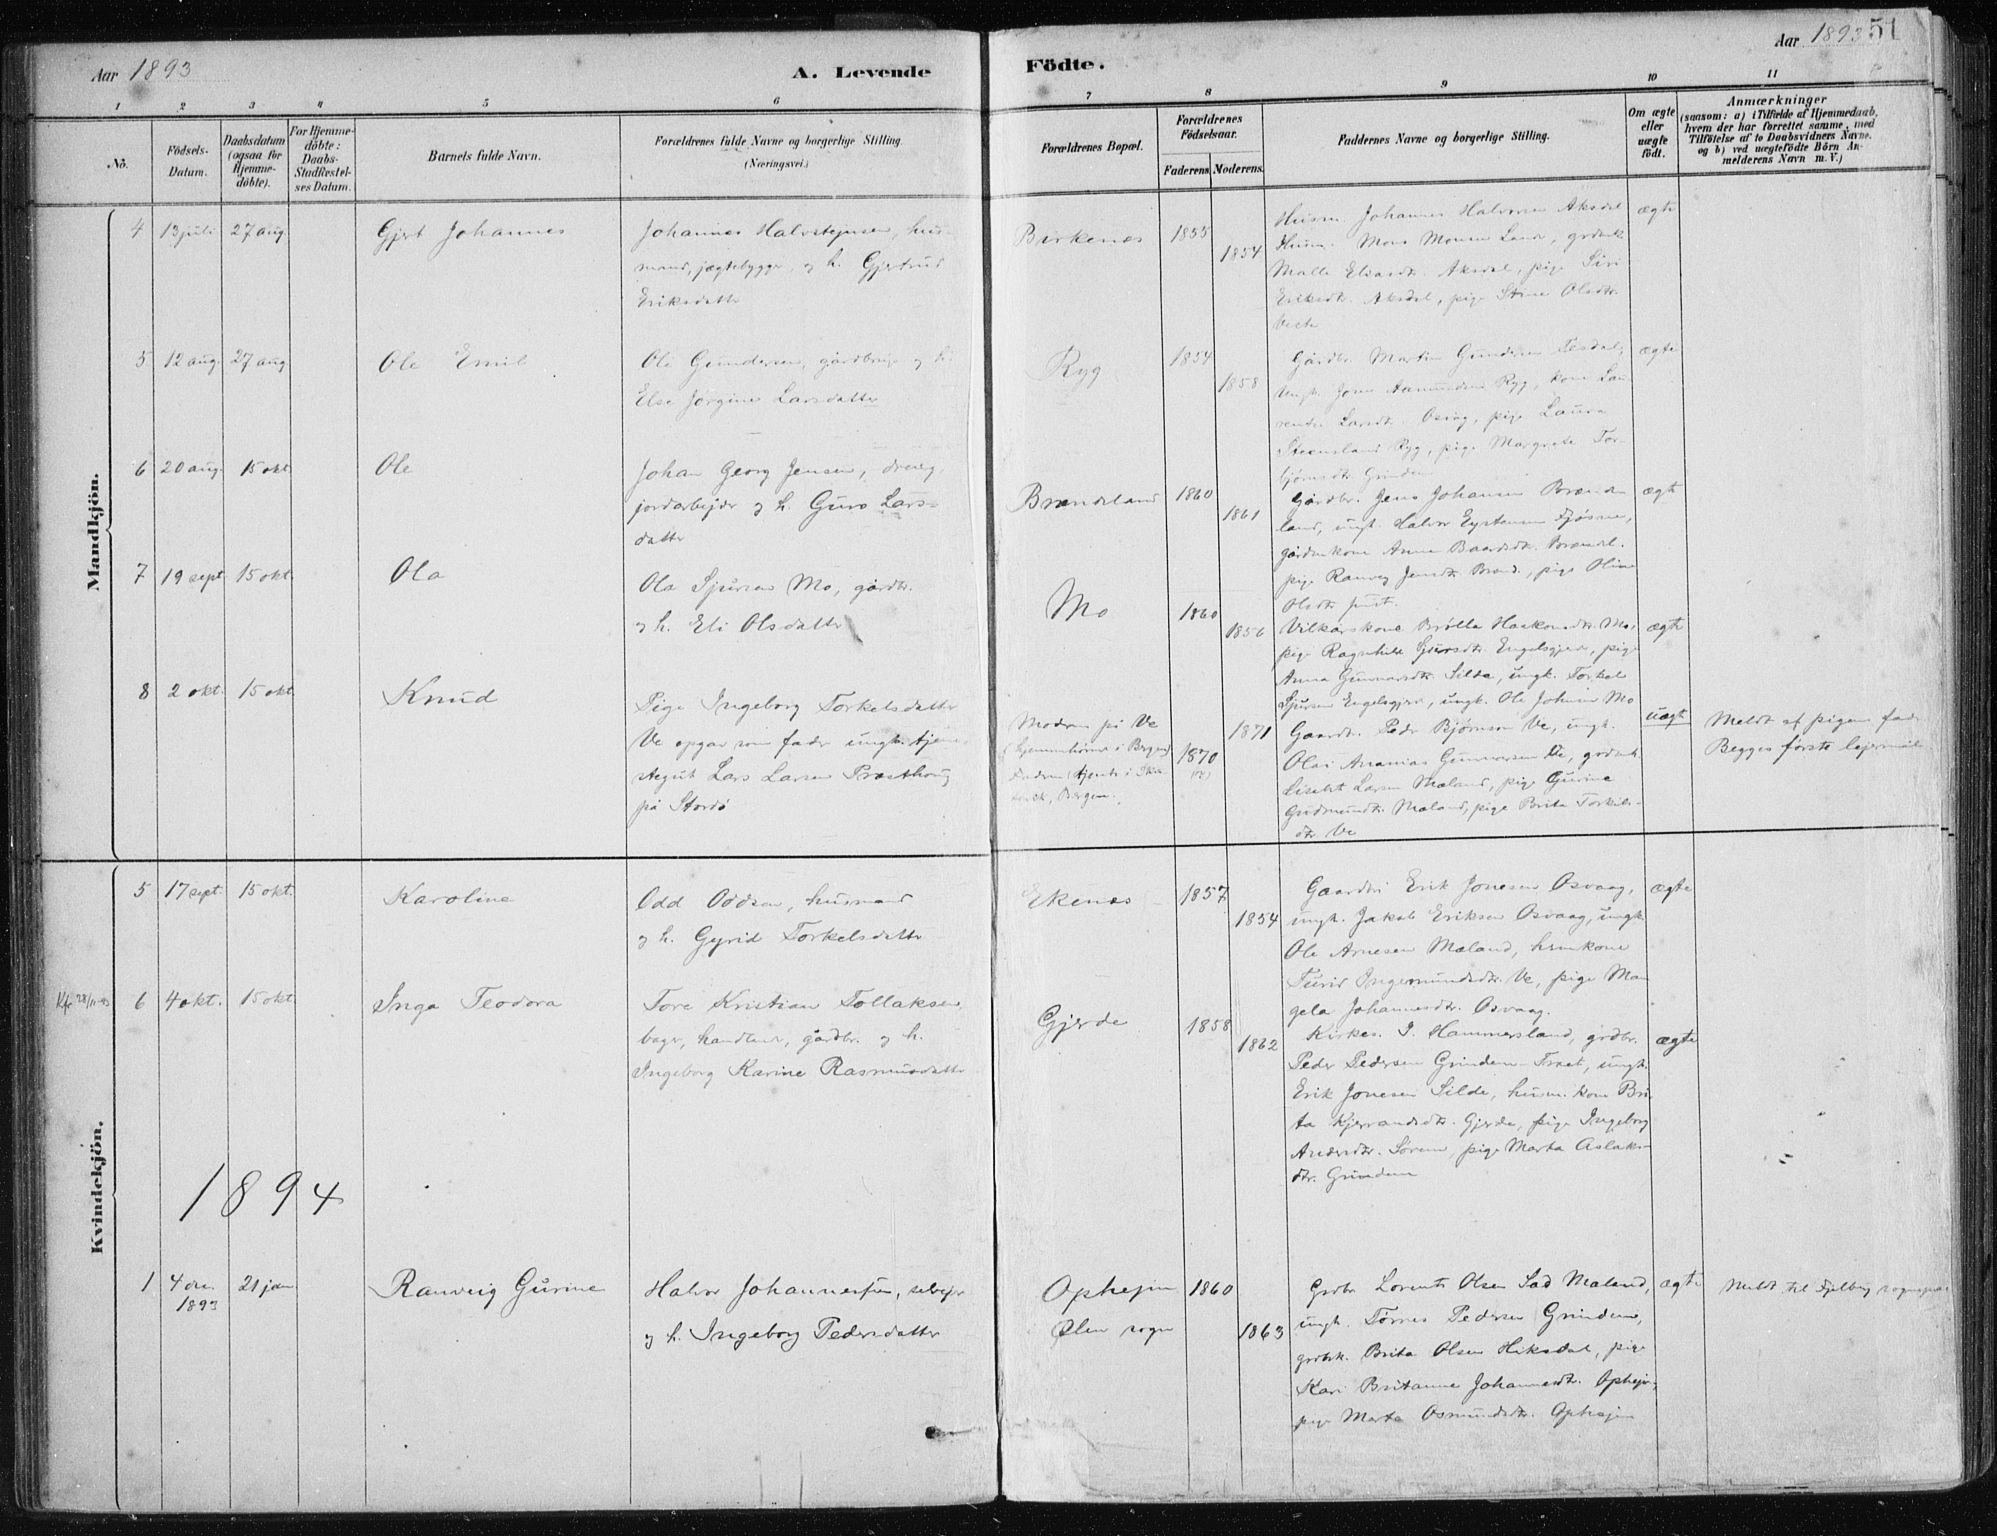 Aar 1893
A. Levende
Födte.
Aar 1893
51
1 2 3 4 5 6 7 8 9 10 11
No.
Födsels-
Datum.
Daabsdatum
(ogsaa for
Hjemme-
döbte).
For Hjemme-
döbte:
Daabs-
Stadfæstel-
ses Datum.
Barnets fulde Navn.
Forældrenes fulde Navne og borgerlige Stilling
(Næringsvei.)
Forældrenes Bopæl.
Forældrenes
Födselsaar.
Faderens. Moderens.
Faddernes Navne og borgerlige Stilling.
Om ægte
eller
uægte
födt.
Anmærkninger
(saasom: a) i Tilfælde af Hjemmedaab,
hvem der har forrettet samme, med
Tilföielse af to Daabsvidners Navne.
og b) ved uægtefödte Börn An-
melderens Navn m. V.)
Mandkjön.
4 13 juli 27 aug.
Gjert Johannes
Johannes Halvstensen, hus-
mand, jægtebygger, og h. Gjertrud
Eriksdatter
Birkenes
1855
1854
Husm. Johannes Halvorsen Aksdal
Husm. Mons Monsen Land, grdmk
Malle Eliasdtr. Aksdal, pige Siri
Eriksdtr. Aksdal, pige Stine Olsdtr.
ægte
5 12 aug. 27 aug
Ole Emil
Ole Gundersen, gårdbruger og h.
Else Jørgine Larsdatter
Ryg
1854
1858
Gårdbr. Martin Gundersen
ungk. Jone Aamundsen Ryg, kone Lau-
rentse Larsdtr. Osvåg, pige Laura
Steensland Ryg, pige Margrete Tor-
bjørnsdtr. Grindem
ægte
6 20 aug. 15 okt
Ole
Johan Georg Jensen,
jordarbejder og h. Guro Lars-
datter
Brændeland
1860
1861
Gårdbr. Jens Johansen Brænde-
land, ungk. Halvor Eystensen Fjøsne,
gårdmkone Anna Baardsdtr. Brændel.
pige Ranveg Jensdtr. Brænd., pige Oline
Olsdtr.
ægte
7 19 sept. 15 okt.
Ola
Ola Sjursen Mo, gårdbr.
og h. Eli Olsdatter
Mo
1860
1856
Vilkårskone Brølla Haakonsdtr. Mo,
pige Ragnhild Sjursdtr. Engelsgjerd, pige
Anna Gunnarsdtr. Silde, ungk. Torkel
Sjursen Engelsgjerd, ungk. Ole Johnsen Mo
ægte
8 2 okt. 15 okt
Knud
Pige Ingeborg Torkelsdatter
Ve opgav som fader ungk. tjene-
stegut Lars Larsen Præsthoug
på Stordø
Modren på Ve
(hjemmehørende i Bergen)
Fadren tjente i
Bergen.
1870
1871
Gaardbr. Peder Bjørnson Ve, ungk.
Olai Ananias Gunnarsen Ve, grdmk
Lisabet Larsen Mæland, pige Gurine
Gudmundsdtr. Mæland, pige Brita Torkels-
dtr. Ve
uægte
Meldt af pigens fader
Begges første lejermål
Kvindekjön.
5 17 sept. 15 okt.
Karoline
Odd Oddsen, husmand
og h. Gyrid Torkelsdatter
Ekenes
1857
1854
Gaardbr. Erik Jonesen Osvaag,
ungk. Jakob Eriksen Osvaag, ungk.
Ole Arnesen Mæland, husmkone
Turid Ingemundsdtr. Ve, pige Ma-
gela Johannesdtr. Osvaag.
ægte
6 4 okt. 15 okt.
Inga Teodora
Tore Kristian Tollaksen,
bager, handlende, gårdbr. og h.
Ingeborg Karine Rasmusdatter
Gjerde
1858
1862
Kirkes. I. Hammersland, grdbr.
Peder Pedersen Grindem-Træet, ungk.
Erik Jonesen Silde, husm.kone Bri-
ta Kjerrandsdtr. Gjerde, pige Ingeborg
Andersdtr. Sørem, pige Marta Aslaks-
dtr. Grindem
ægte
1894
1 4 dec. 1893 21 jan
Ranveig Gurine
Halvor Johannesen, selvejer
og h. Ingeborg Pedersdatter
Ophejm
Ølen sogn
1860
1863
Grdbr. Lorents Olsen Sad Mæland,
ungk. Tørres Pedersen Grindem,
grdbrk. Brita Olsen Hiksdal, pige
Kari Britanne Johannesdtr. Ophejm,
pige Marta Osmundsdtr. Ophejm
ægte
Meldt til Fjelberg sogneprest